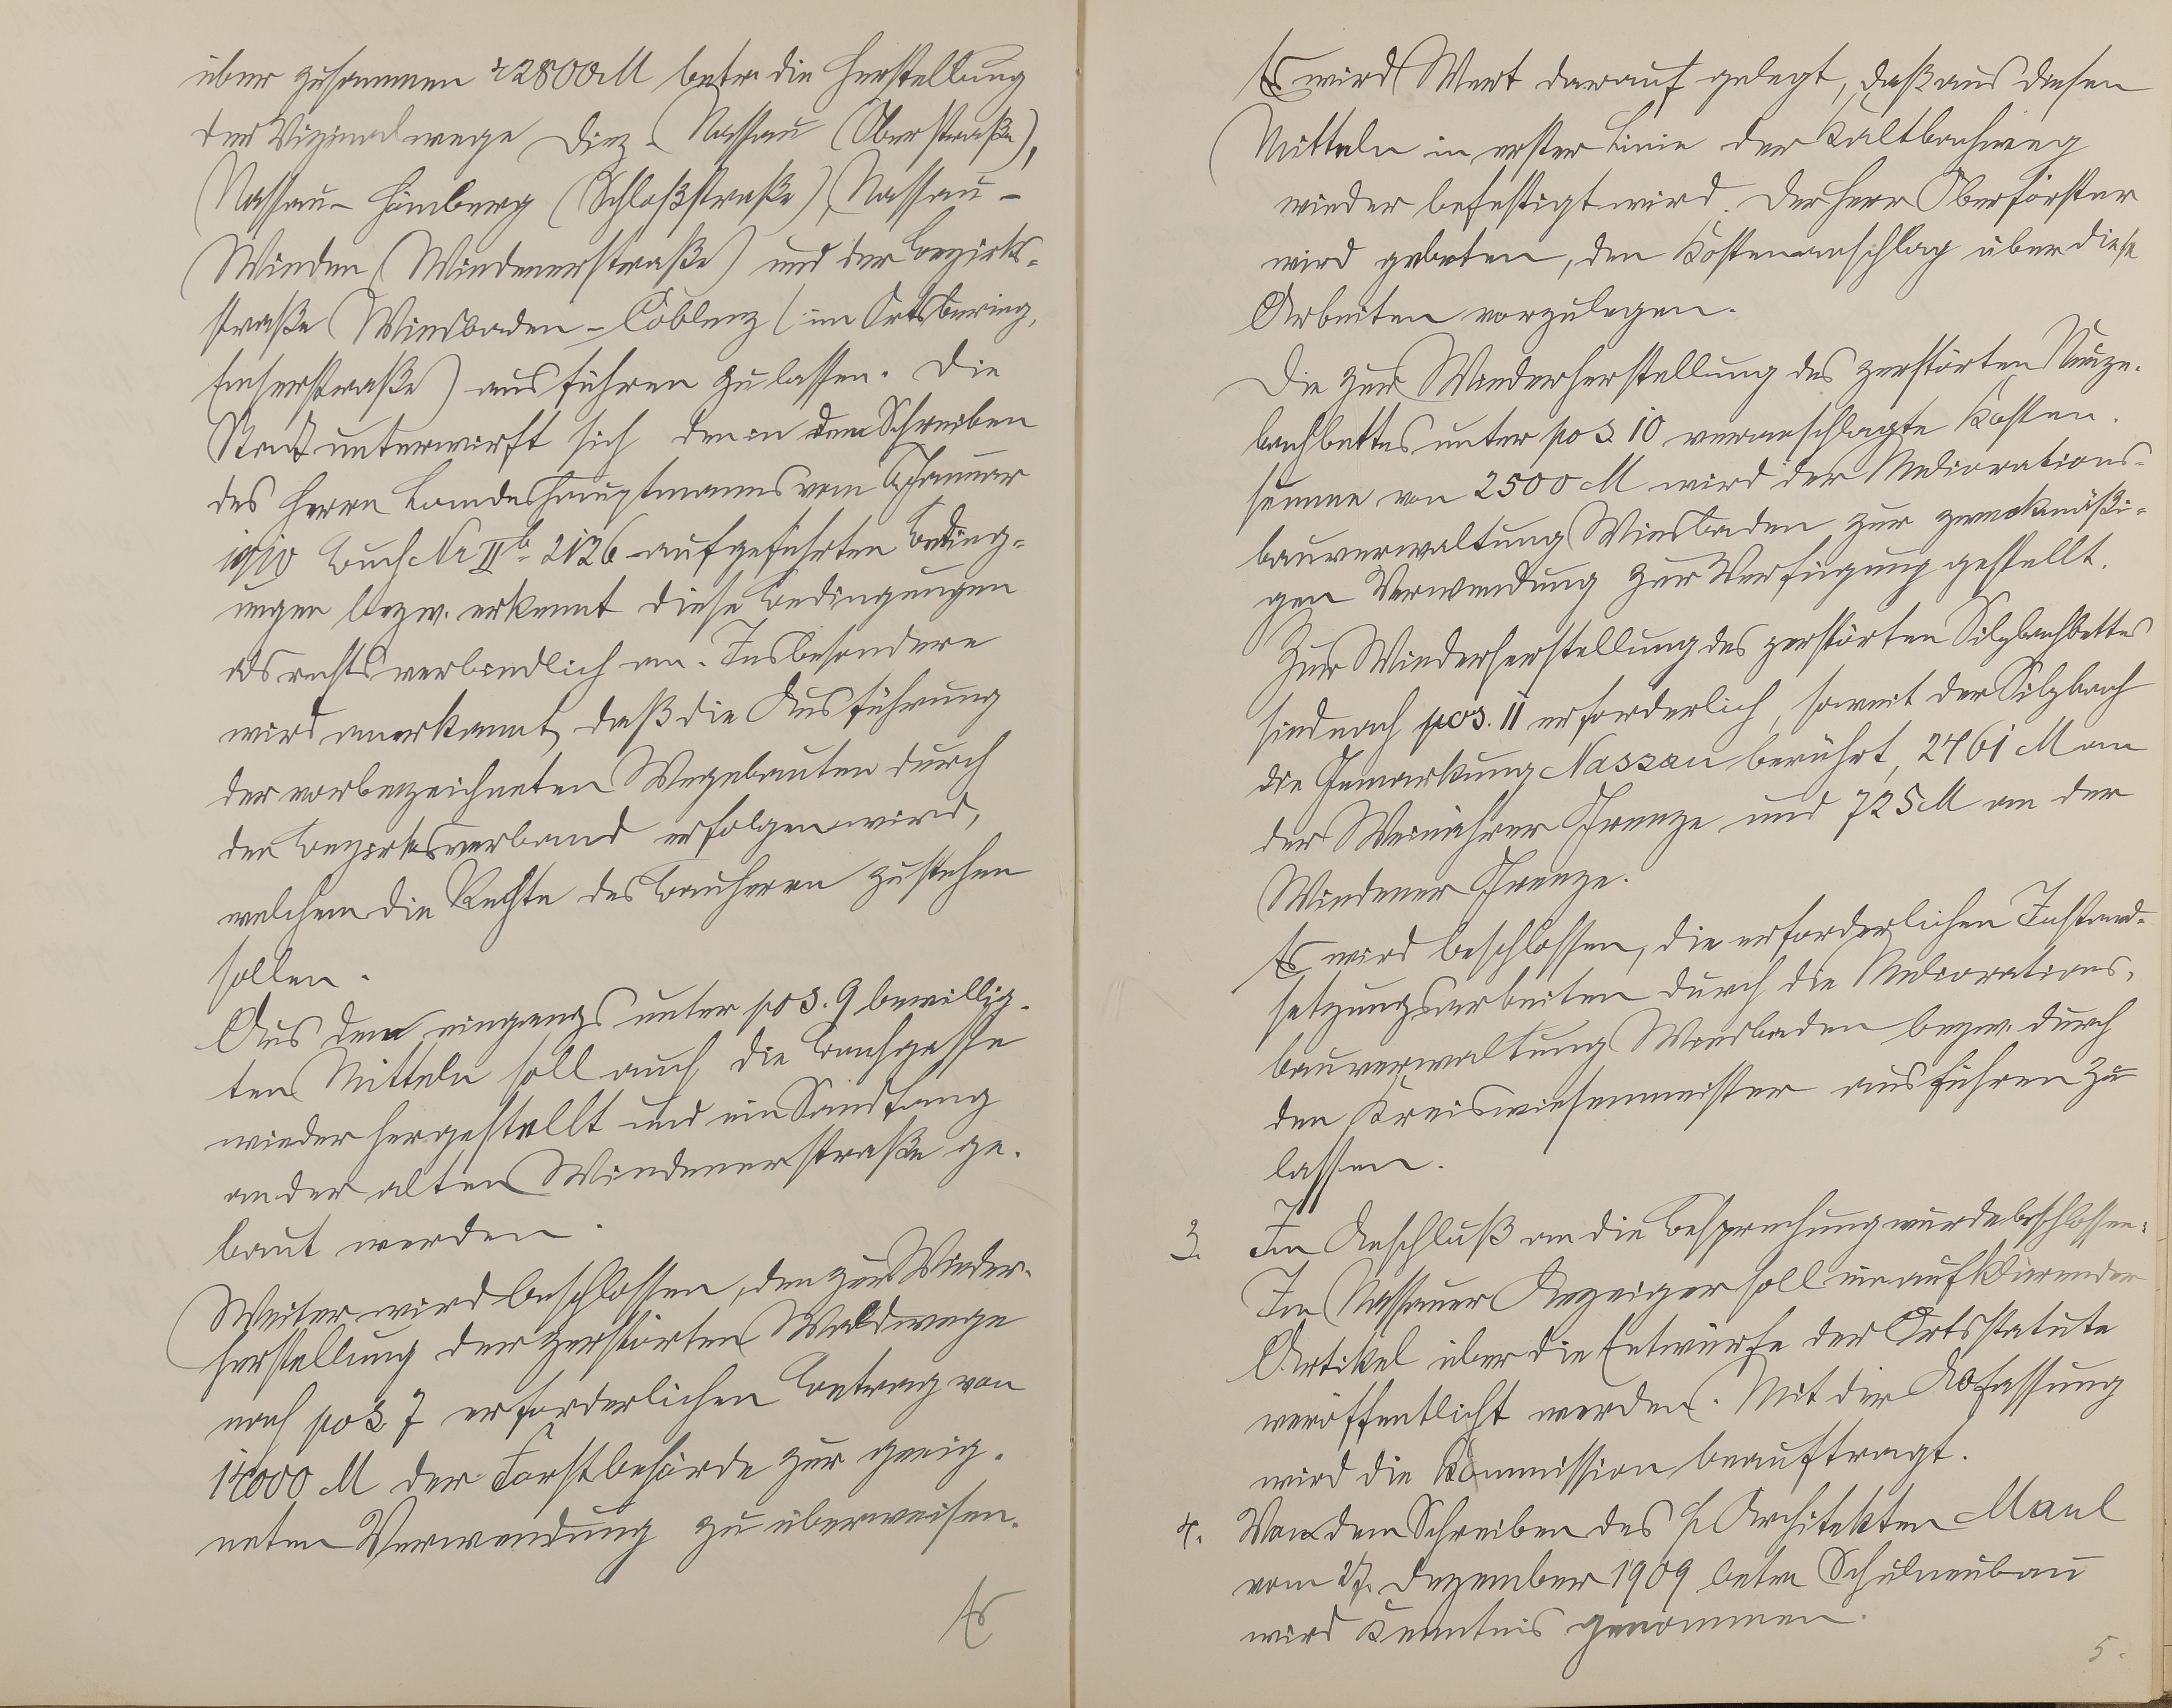 über zusammen 22800 M betr. die Herstellung
der Vizinalwege Diez - Nassau (Oberstraße),
Nassau - Hömberg (Schloßstraße), Nassau -
Winden (Windenerstraße) und der Bezirks-
straße Wiesbaden - Coblenz (im Ortsbering,
Emserstraße) ausführen zu lassen. Die
Stadt unterwirft sich den in dem Schreiben
des Herrn Landeshauptmanns vom Januar
1910 Buch Nr IIb 2126 aufgeführten Beding-
ungen bezw. erkennt diese Bedingungen
als rechtsverbindlich an. Insbesondere
wird anerkannt, daß die Ausführung
der vorbezeichneten Wegebauten durch
den Bezirksverband erfolgen wird,
welchem die Rechte des Bauherrn zustehen
sollen.
Aus den eingangs unter pos. 9 bewillig-
ten Mitteln soll auch die Bachgasse
wieder hergestellt und ein Sandfang
an der alten Windenerstraße ge-
baut werden.
Weiter wird beschlossen, den zur Wieder-
herstellung der zerstörten Waldwege
nach pos 7 erforderlichen Betrag von
14000 M der Forstbehörde zur geeig-
neten Verwendung zu überweisen.
Es
Es wird Wert darauf gelegt, daß aus diesen
Mitteln in erster Linie der Kaltbachweg
wieder befestigt wird. Der Herr Oberförster
wird gebeten, den Kostenanschlag über diese
Arbeiten vorzulegen.
Die zur Wiederherstellung des zerstörten
bachbettes unter pos 10 veranschlagte Kosten-
summe von 2500 M wird der Meliorations-
bauverwaltung Wiesbaden zur zweckmäßi-
gen Verwendung zur Verfügung gestellt.
Zur Wiederherstellung des zerstörten Silzbachbettes
sind nach pos. 11 erforderlich, soweit der Silzbach
die Gemarkung Nassau berührt, 2461 M an
der Weinährer Grenze und 725 M an der
Windener Grenze.
Es wird beschlossen, die erforderlichen Instand-
setzungsarbeiten durch die Meliorations-
bauverwaltung Wiesbaden bezw. durch
den Kreiswiesenmeister ausführen zu
lassen.
3. Im Anschluß an die Besprechung wurde beschlossen:
Im Nassauer Anzeiger soll ein aufklärender
Artikel über die Entwürfe der Ortsstatute
veröffentlicht werden. Mit der Abfassung
wird die Kommission beauftragt.
4. Von dem Schreiben des H Architekten Maul
vom 27. Dezember 1909 betr. Schulneubau
wird Kenntnis genommen.
5.